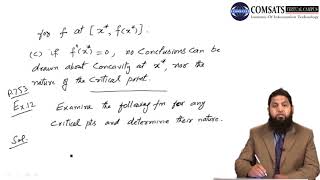 COMSATS VIRTUAL CAMPUS
Institute Of Information Technology
for f at [x*, f(x*)].
(c) if f''(x*)=0, no Conclusions can be
drawn about Concavity at x* nor the
nature of the Critical point.
P.753
Ex12 Examine the following fn for any
Critical pts and determine their nature.
Sol.